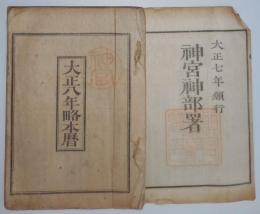 大正七年頒行
神宮神部署
大正八年略本暦